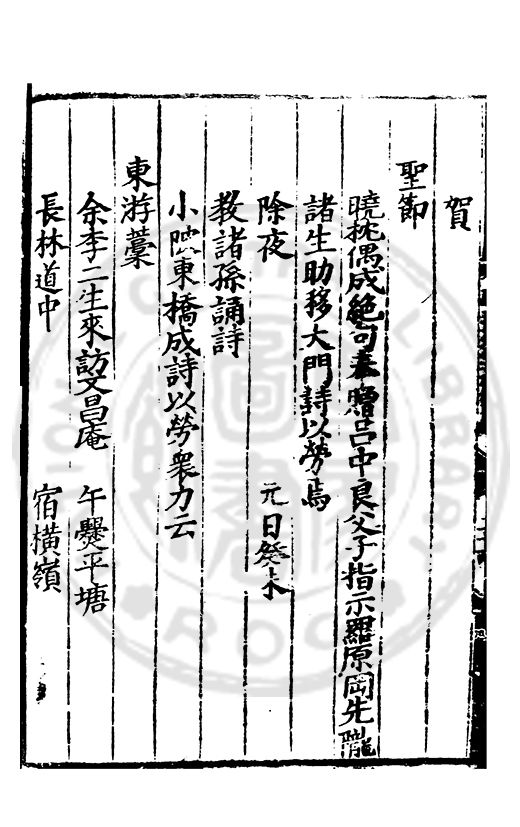 賀
聖節
曉枕偶成絶句奉贈呂中良父子指示羅原岡先隴
諸生助移大門詩以勞焉
除夜 元日癸未
教諸孫誦詩
小陂東橋成詩以勞衆力云
東游藁
余李二生來訪文昌庵 午爨平塘
長林道中 宿橫嶺